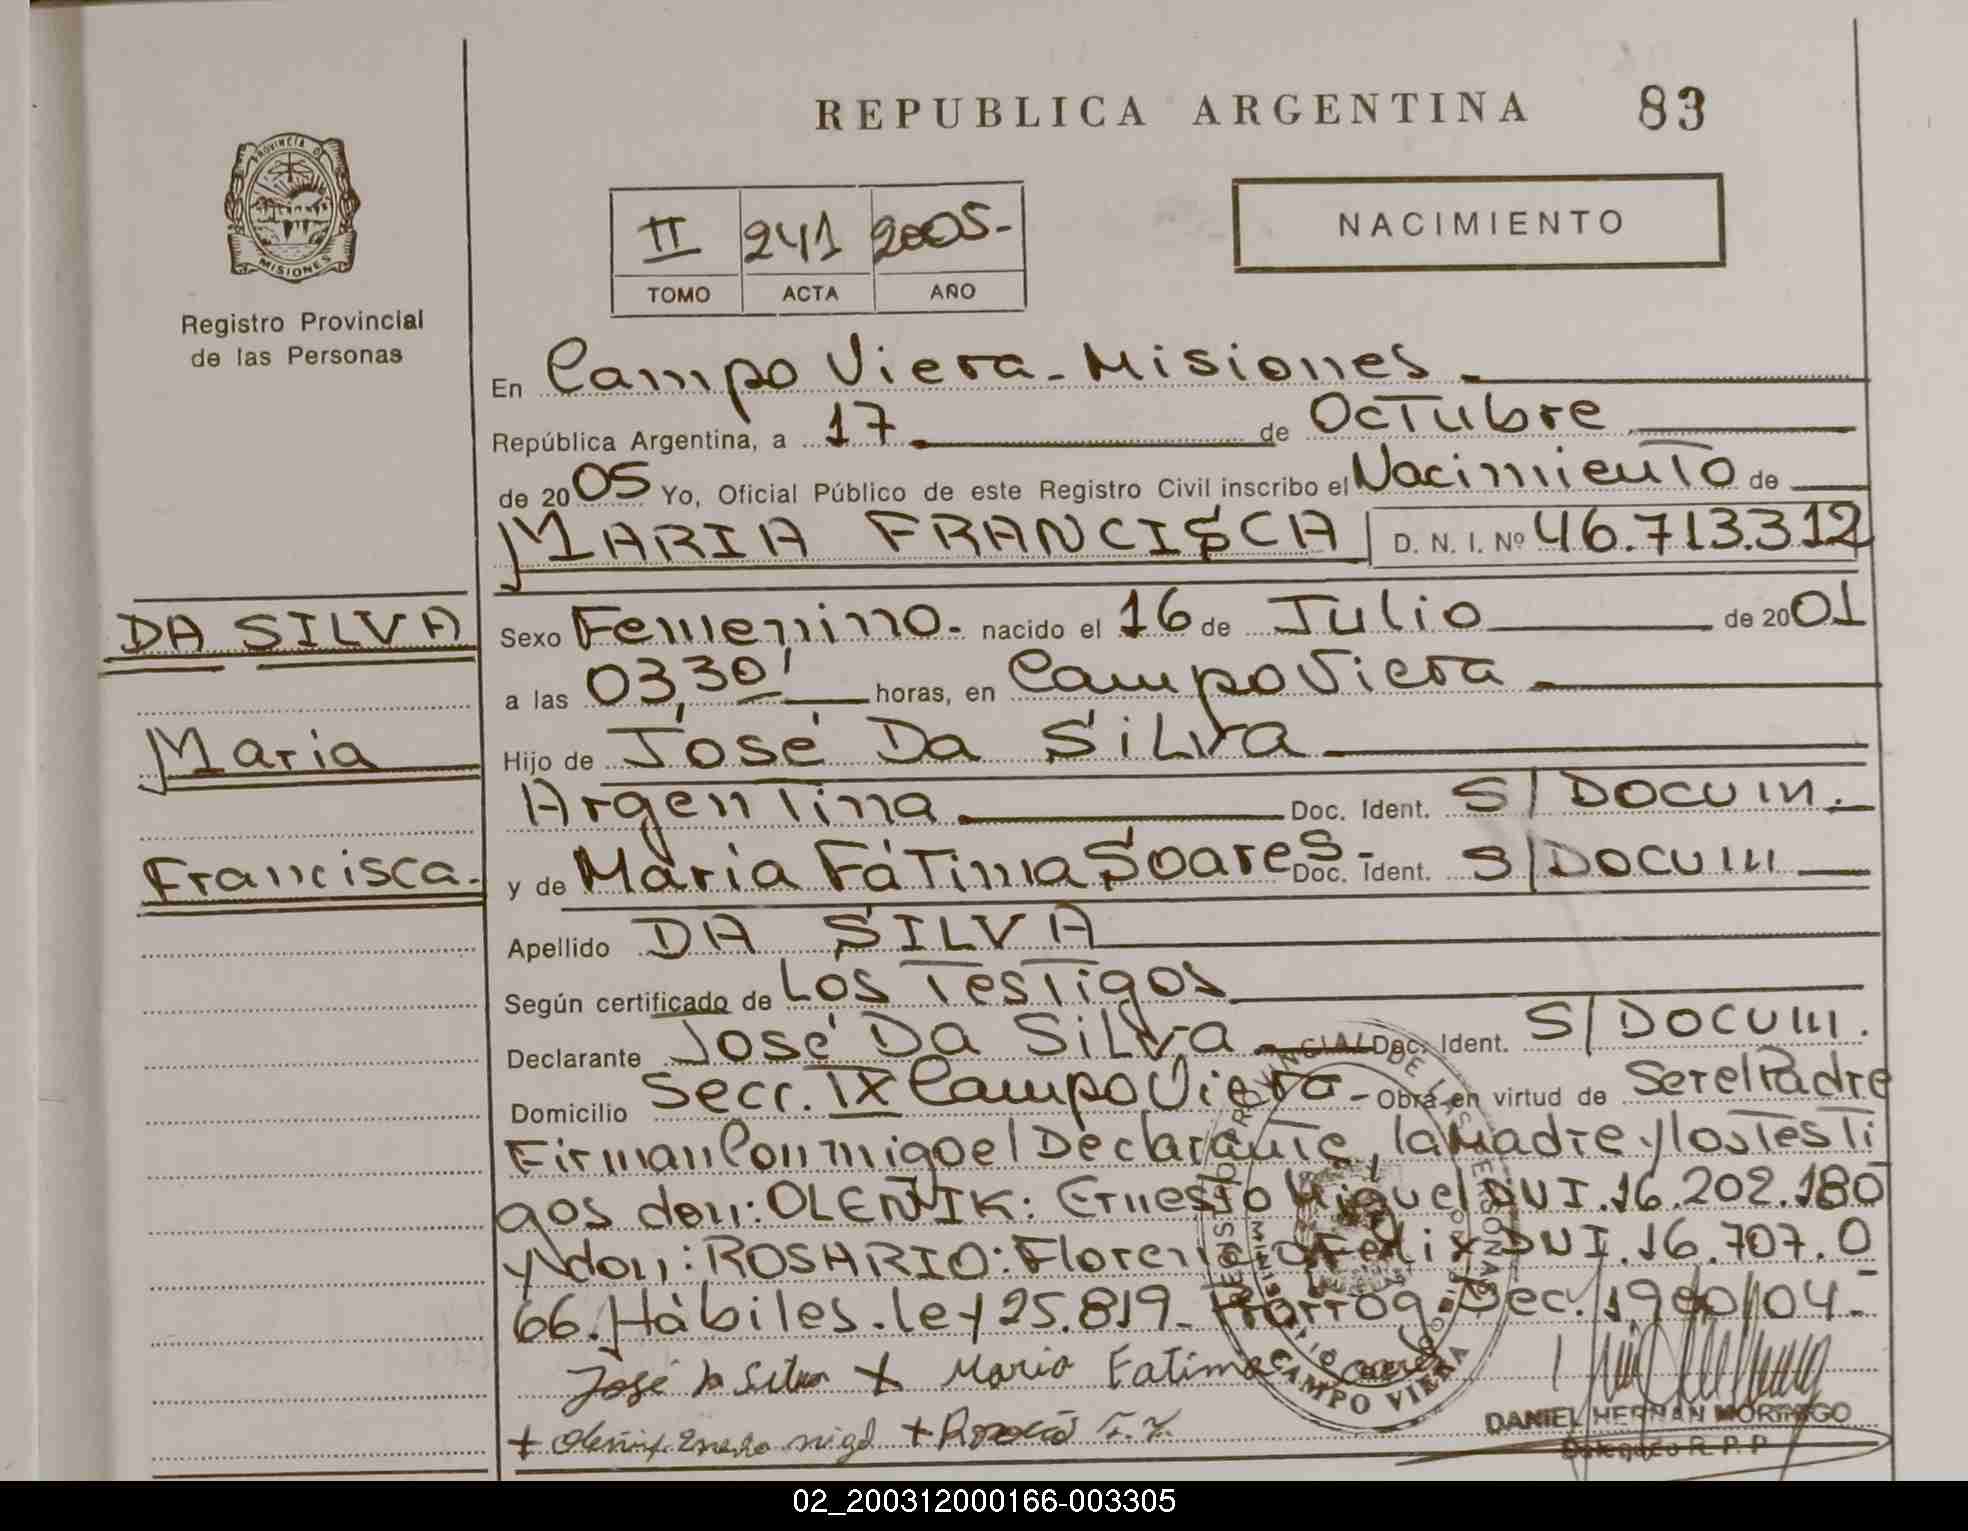 REPUBLICA ARGENTINA 83
PROVINCIA DE
MISIONES
Registro Provincial
de las Personas
II 241 2005-
TOMO ACTA AÑO
NACIMIENTO
En Campo Viera - Misiones
República Argentina, a 17 de Octubre
de 2005 Yo, Oficial Público de este Registro Civil inscribo el Nacimiento de
MARIA FRANCISCA D. N. I. Nº 46.713.312
DA SILVA
Maria
Francisca.
Sexo Femenino. nacido el 16 de Julio de 2001
a las 03,30' horas, en Campo Viera
Hijo de José Da Silva
Argentina Doc. Ident. S/DOCUM.
y de María Fátima Soares - Doc. Ident. S/DOCUM
Apellido DA SILVA
Según certificado de Los Testigos
Declarante José Da Silva Doc. Ident. S/DOCUM.
Domicilio Secc. IX Campo Viera - Obra en virtud de Ser el Padre
Firman Conmigo el Declarante, la Madre y los Testi
gos don: OLEÑIK: Ernesto Miguel DNI.16.202.180
y don: ROSARIO: Florencio Felix DNI.16.707.0
66. Hábiles. ley 25.819 - Prorrog. Dec. 1.940/04 -
José da Silva x Maria Fatima
CAMPO VIERA
DANIEL HERNAN MORINIGO
Delegado R. P. P
02_200312000166-003305